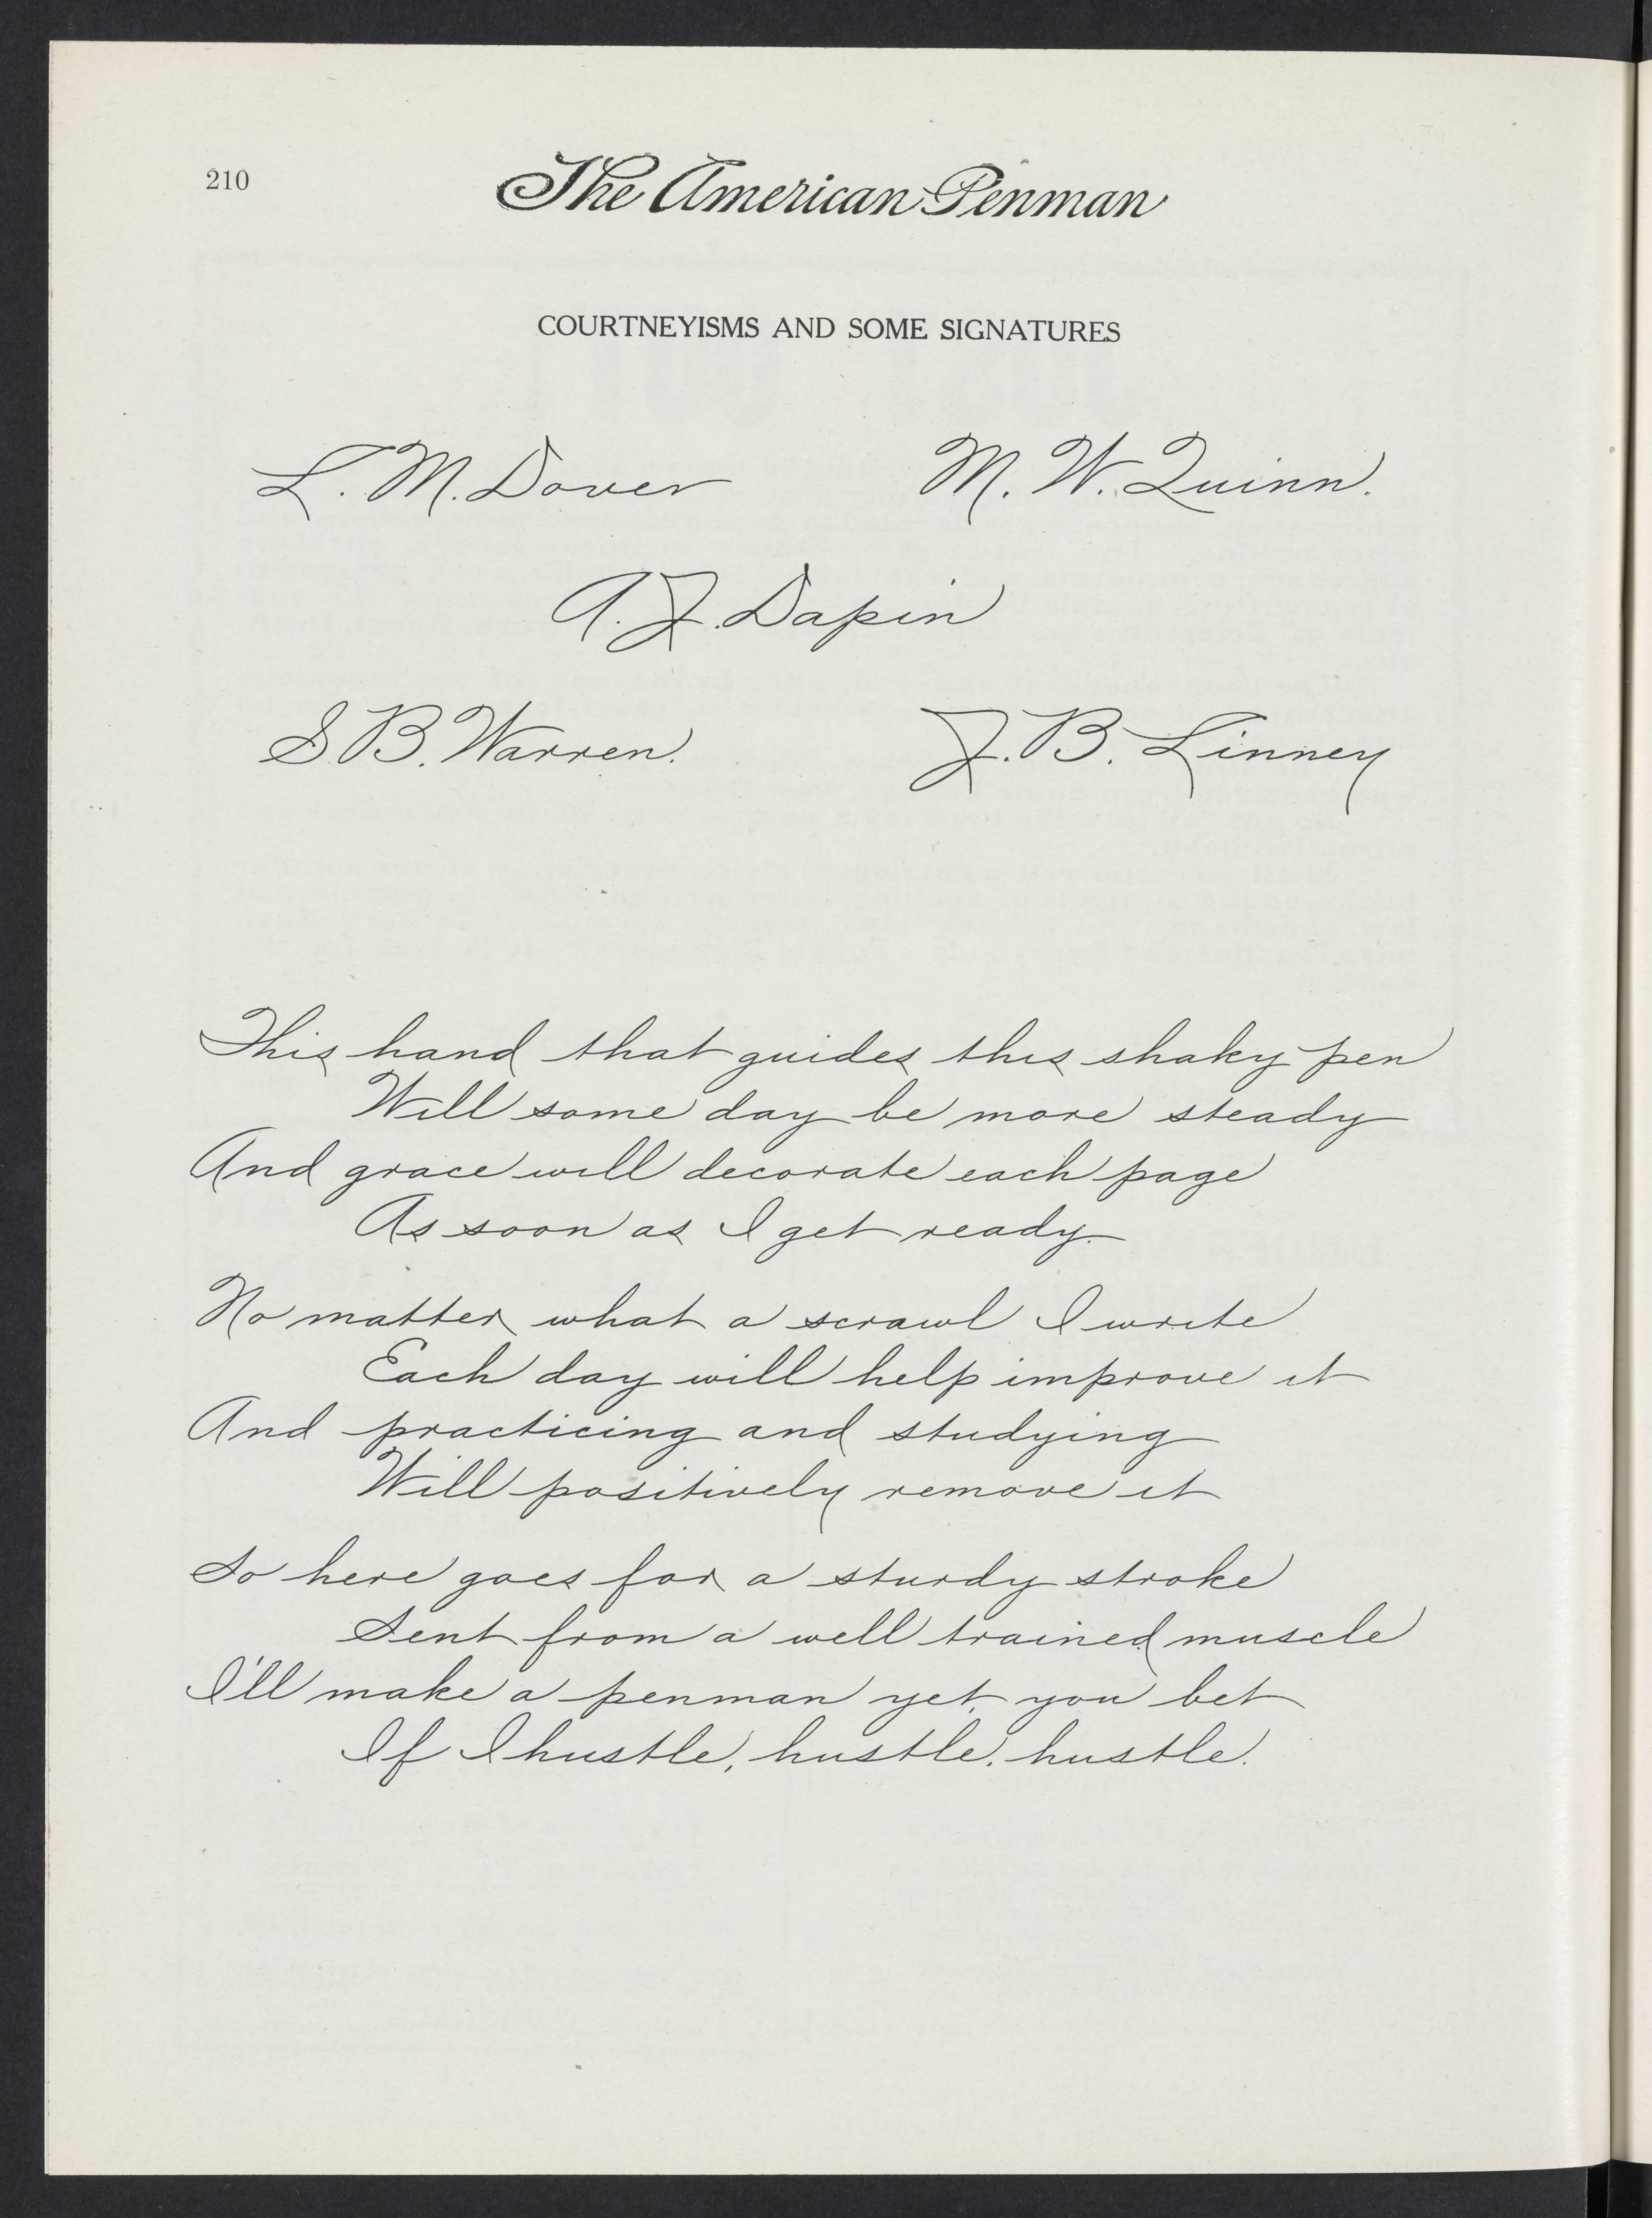 210
The American Penman
COURTNEYISMS AND SOME SIGNATURES
L. M. Dover
M. W. Quinn.
A. J. Dapin
S. B. Warren.
J. B. Linney
This hand that guides this shaky pen
Will some day be more steady
And grace will decorate each page
As soon as I get ready.
No matter what a scrawl I write
Each day will help improve it
And practicing and studying
Will positively remove it
So here goes for a sturdy stroke
Sent from a well trained muscle
I'll make a penman yet, you bet
If I hustle, hustle, hustle.